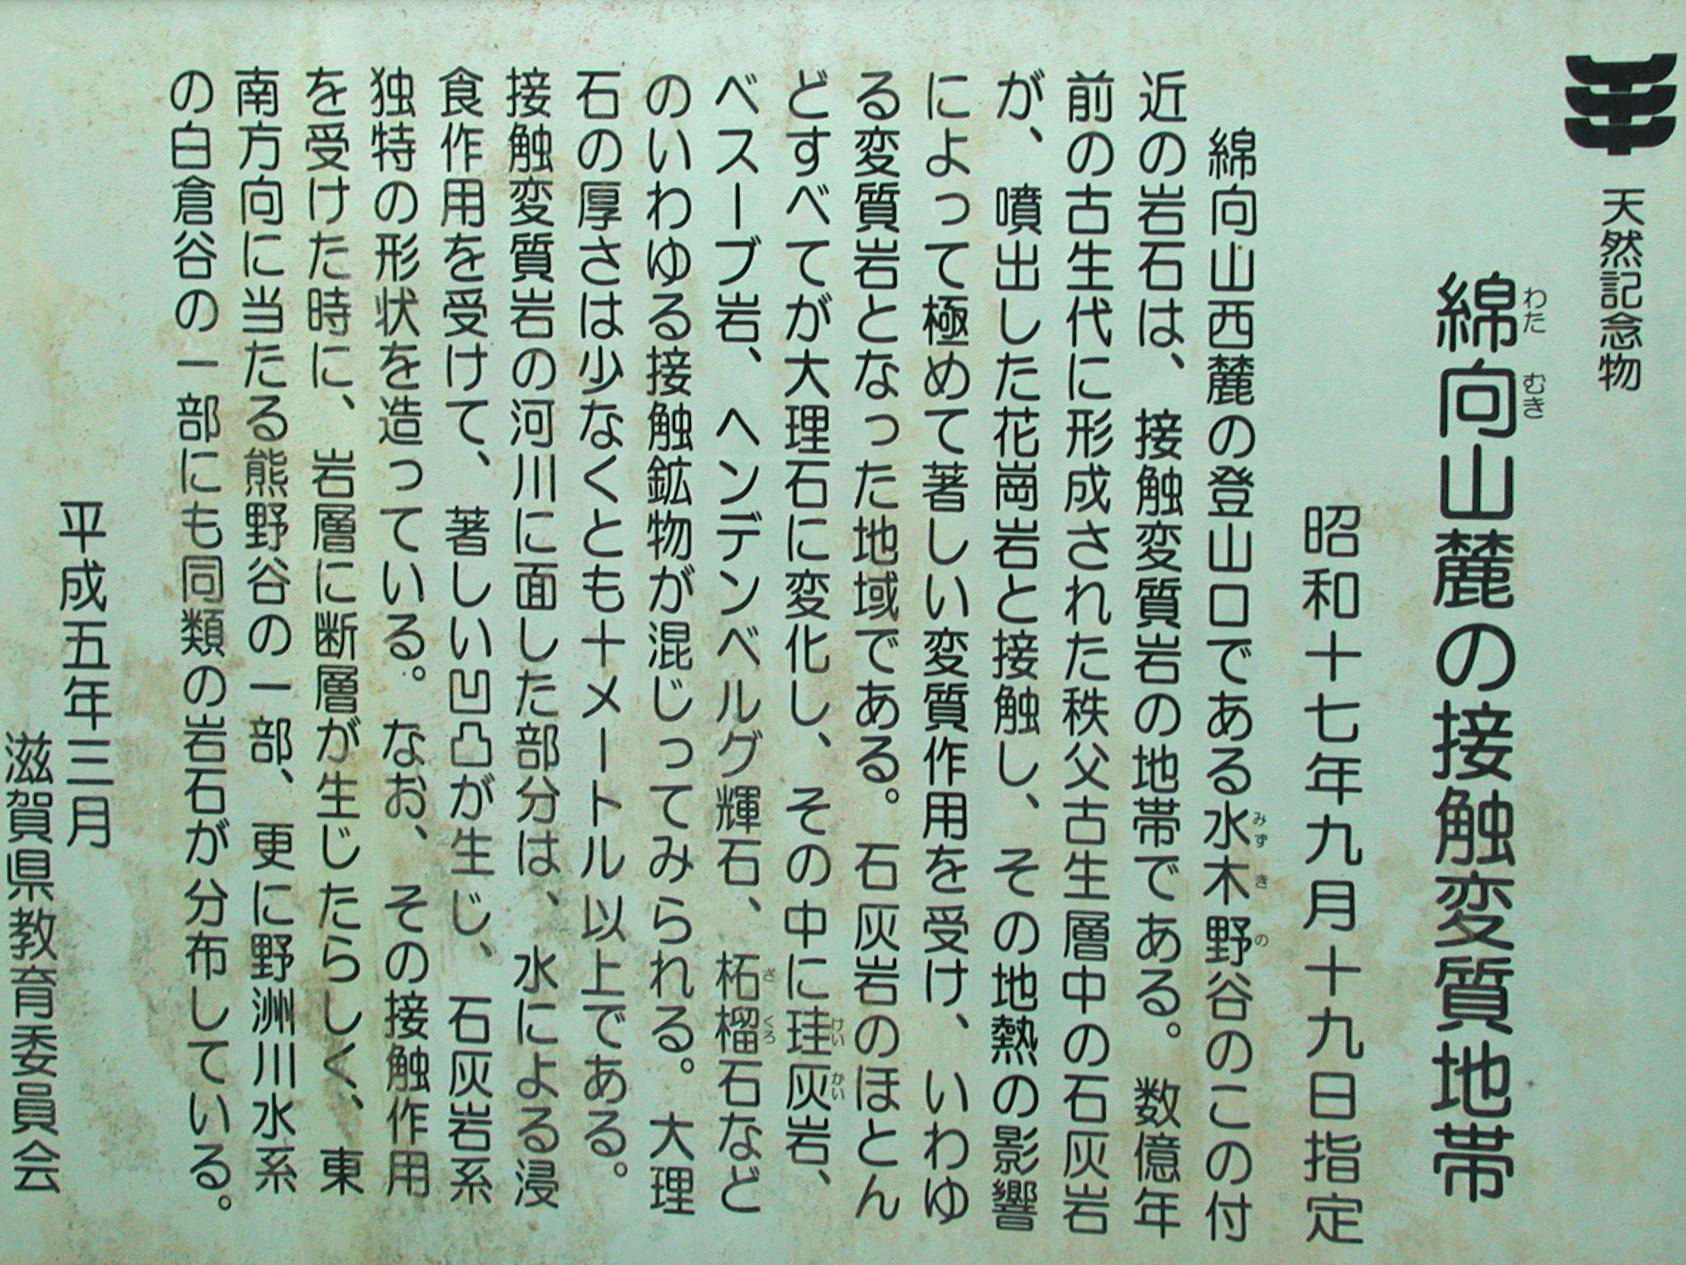 天然記念物
綿向山麓の接触変質地帯
わた むき
昭和十七年九月十九日指定
綿向山西麓の登山口である水木野谷のこの付
みず き の
近の岩石は、接触変質岩の地帯である。数億年
前の古生代に形成された秩父古生層中の石灰岩
が、噴出した花崗岩と接触し、その地熱の影響
によって極めて著しい変質作用を受け、いわゆ
る変質岩となった地域である。石灰岩のほとん
どすべてが大理石に変化し、その中に珪灰岩、
けい かい
ベスーブ岩、ヘンデンベルグ輝石、柘榴石など
ざ くろ
のいわゆる接触鉱物が混じってみられる。大理
石の厚さは少なくとも十メートル以上である。
接触変質岩の河川に面した部分は、水による浸
食作用を受けて、著しい凹凸が生じ、石灰岩系
独特の形状を造っている。なお、その接触作用
を受けた時に、岩層に断層が生じたらしく、東
南方向に当たる熊野谷の一部、更に野洲川水系
の白倉谷の一部にも同類の岩石が分布している。
平成五年三月
滋賀県教育委員会